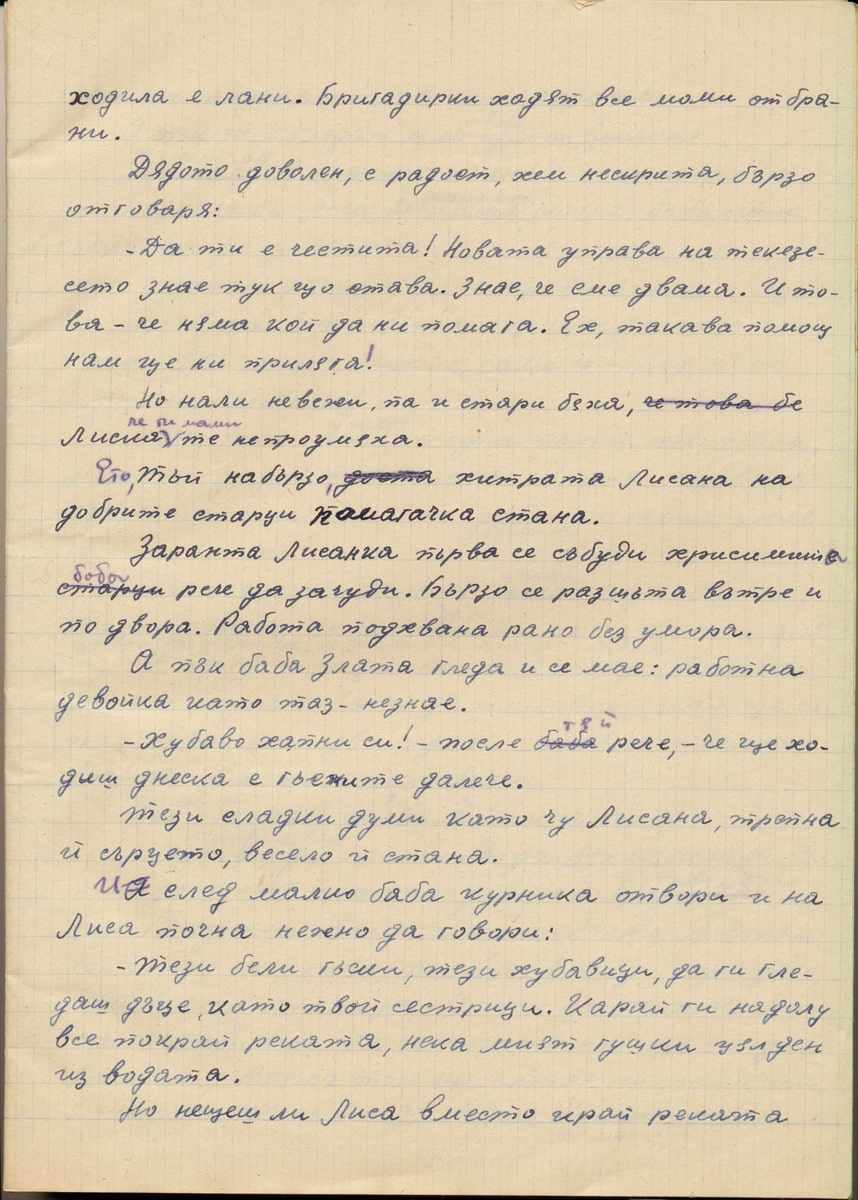 ходила е лани. Бригадирки ходят все моми отбра-
ни.
Дядото доволен, с радост, хем нескрита, бързо
отговаря:
- Да ти е честита! Новата управа на текезе-
сето знае тук що става. Знае, че сме двама. И то-
ва - че няма кой да ни помага. Ех, такава помощ
нам ще ни приляга!
Но нали невежи, па и стари бяха, че това бе
че ги мами
Лиска те непроумяха.
Ето, Тъй набързо, доста хитрата Лисана на
добрите старци помагачка стана.
Заранта Лисанка първа се събуди хрисимите
бабо
старци рече да зачуди. Бързо се разшъта вътре и
по двора. Работа подхвана рано без умора.
А пък баба Злата гледа и се мае: работна
девойка като таз - незнае.
тя й
- Хубаво хапни си! - после баба рече, - че ще хо-
диш днеска с гъските далече.
Тези сладки думи като чу Лисана, трепна
й сърцето, весело й стана.
И А след малко баба курника отвори и на
Лиса почна нежно да говори:
- Тези бели гъски, тези хубавици, да ги гле-
даш дъще, като твой сестрици. Карай ги надолу
все покрай реката, нека мият гушки цял ден
из водата.
Но нещеш ли Лиса вместо край реката